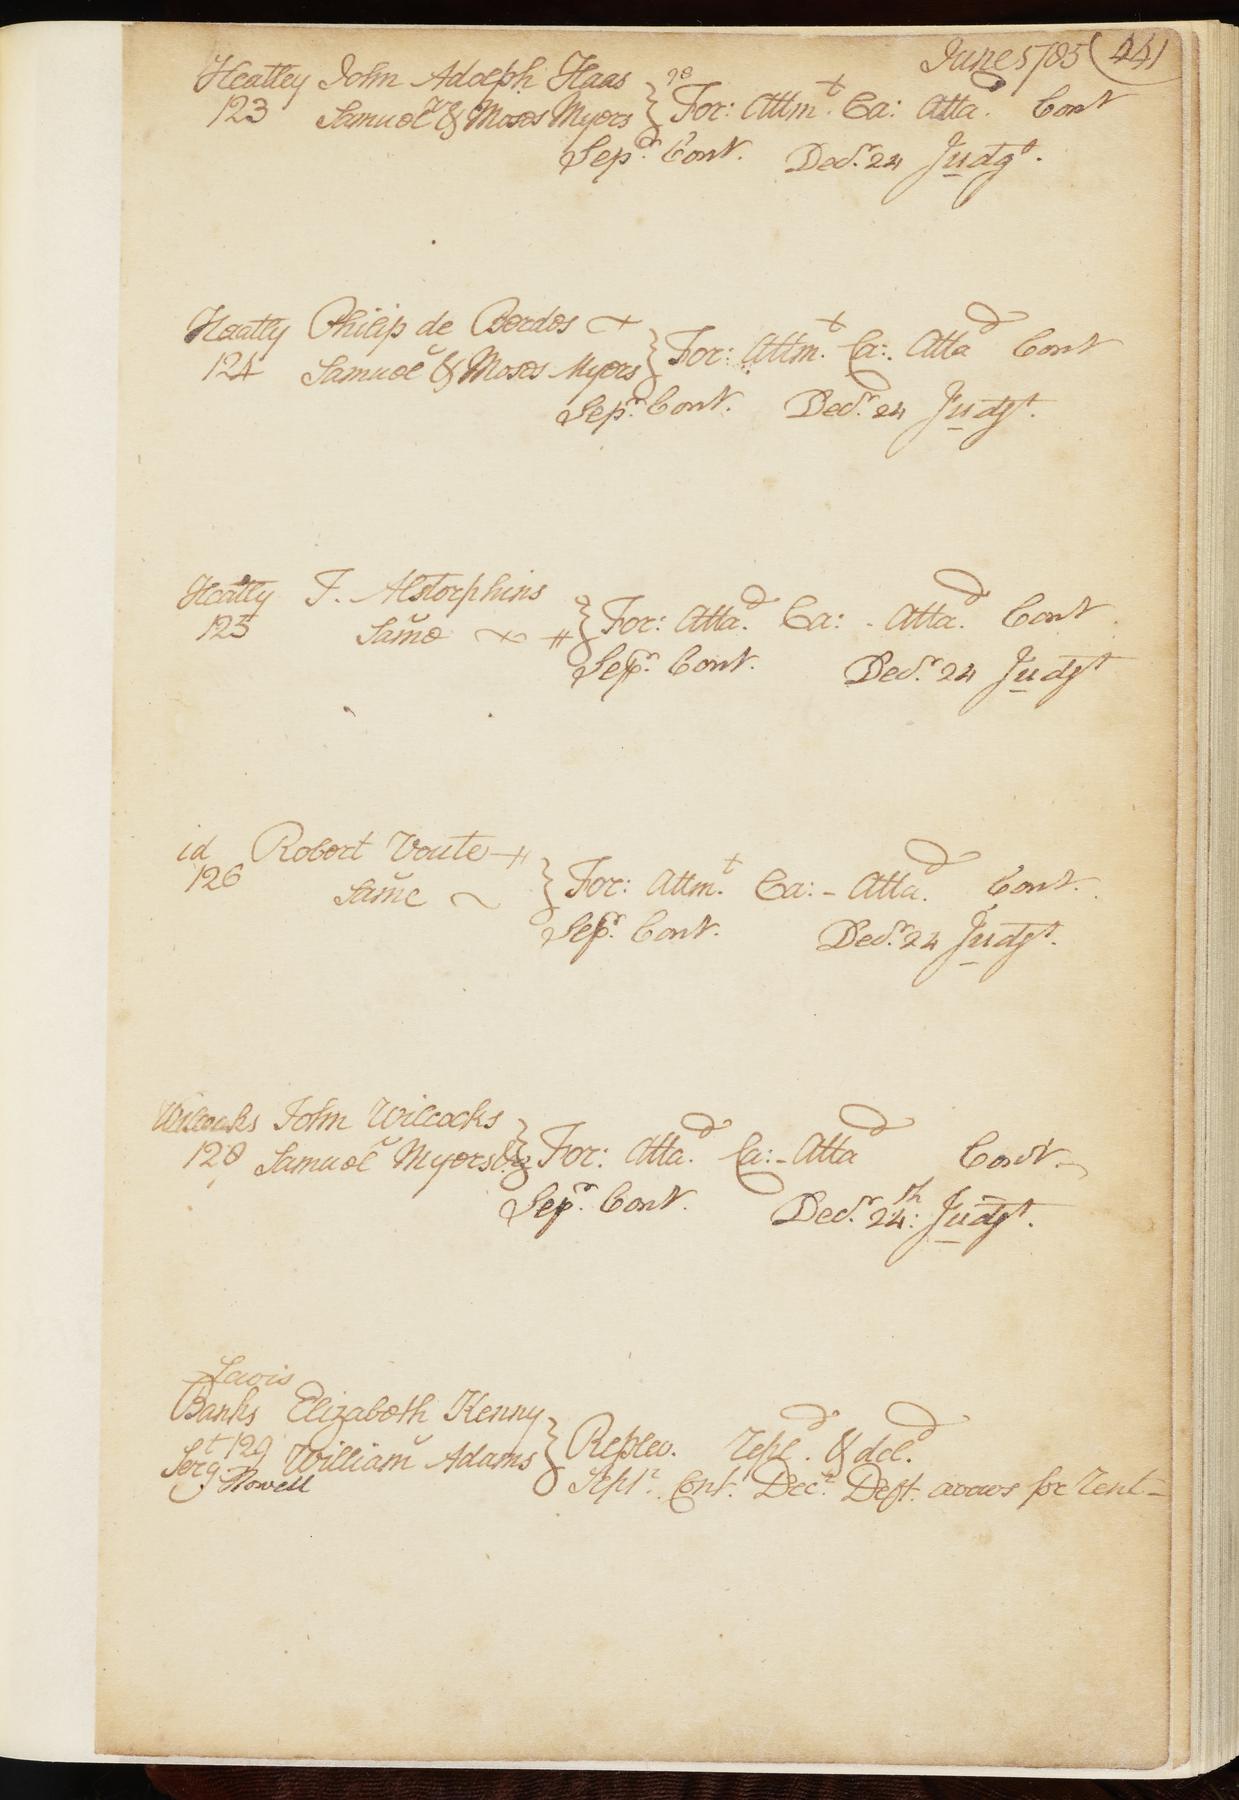 June 5 / 85 (441
Heatley John Adolph Haas
123 Samuel & Moses Myers } For: Attmt. Ca: Atta. Cont
Sepr. Cont. Decr. 24 Judgt.
Heatly Philip de Bordes
124 Samuel & Moses Myers } For: Attmt. Ca: Attad Cont
Sepr. Cont. Decr. 24 Judgt.
Heatly F. Alstorphins
125 Same } For: Attad. Ca: - Attad. Cont
Sepr. Cont. Decr. 24 Judgt
id Robert Voute
126 Same } For: Attmt. Ca: - Attad. Cont.
Sepr. Cont. Decr. 24 Judgt.
Wilcocks John Wilcocks
128 Samuel Myers & } For: Attad. Ca: - Attad Cont.
Sepr. Cont. Decr. 24th: Judgt.
Lewis
Banks Elizabeth Kenny
129 William Adams } Replev. repld. & deld.
Sergt Howell Septr. Cont. Decr. Deft. avows for rent -